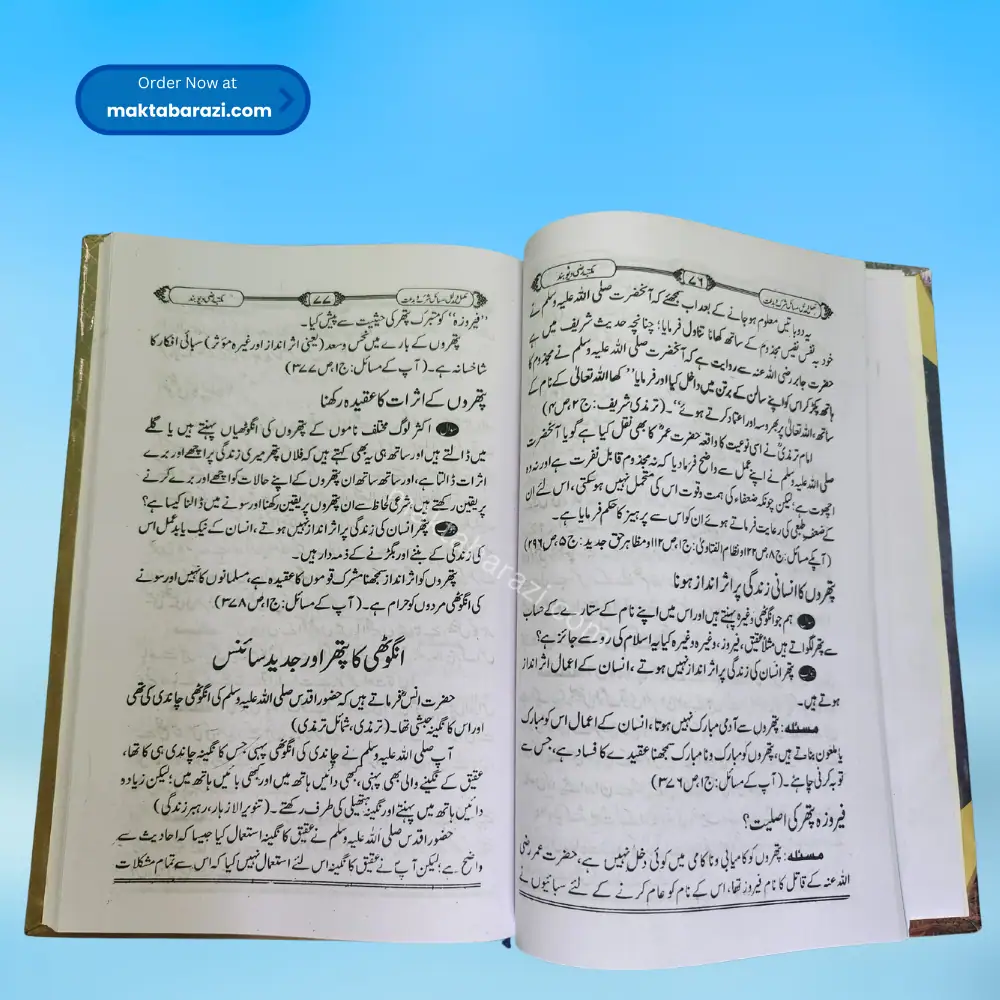 Order Now at
maktabarazi.com
مکتبہ رضی دیوبند
۷۶
مکمل ومدلل مسائل شرک وبدعت
یہ دو باتیں معلوم ہو جانے کے بعد اب سمجھئے کہ آنحضرت صلی اللہ علیہ وسلم نے
خود بہ نفس نفیس مجذوم کے ساتھ کھانا تناول فرمایا؛ چنانچہ حدیث شریف میں ہے
حضرت جابر رضی اللہ عنہ سے روایت ہے کہ آنحضرت صلی اللہ علیہ وسلم نے مجذوم کا
ہاتھ پکڑ کر اس کو اپنے سالن کے برتن میں داخل کیا اور فرمایا ’’کھا اللہ تعالیٰ کے نام کے
ساتھ، اللہ تعالیٰ پر بھروسہ اور اعتماد کرتے ہوئے‘‘۔ (ترمذی شریف: ج۲،ص۴)
امام ترمذیؒ نے اسی نوعیت کا واقعہ حضرت عمرؓ کا بھی نقل کیا ہے گویا آنحضرت
صلی اللہ علیہ وسلم نے اپنے عمل سے واضح فرما دیا کہ نہ مجذوم قابل نفرت ہے اور نہ وہ
اچھوت ہے؛ لیکن چونکہ ضعفاء کی ہمت وقوت اس کی متحمل نہیں ہو سکتی، اس لئے ان
کے ضعف طبعی کی رعایت فرماتے ہوئے ان کو اس سے پرہیز کا حکم فرمایا ہے۔
(آپ کے مسائل: ج۸،ص۲۲ او نظام الفتاویٰ: ج۱،ص۱۱۲ و مظاہر حق جدید: ج۵،ص۲۹۶)
پتھروں کا انسانی زندگی پر اثر انداز ہونا
سوال ہم جو انگوٹھی وغیرہ پہنتے ہیں اور اس میں اپنے نام کے ستارے کے حساب
سے پتھر لگواتے ہیں مثلاً عقیق، فیروز، وغیرہ وغیرہ کیا یہ اسلام کی رو سے جائز ہے؟
جواب پتھر انسان کی زندگی پر اثر انداز نہیں ہوتے، انسان کے اعمال اثر انداز
ہوتے ہیں۔
مسئلہ: پتھروں سے آدمی مبارک نہیں ہوتا، انسان کے اعمال اس کو مبارک
یا ملعون بناتے ہیں، پتھروں کو مبارک ونا مبارک سمجھنا عقیدے کا فساد ہے، جس سے
توبہ کرنی چاہئے۔ (آپ کے مسائل: ج۱،ص۳۷۶)
فیروزہ پتھر کی اصلیت؟
مسئلہ: پتھروں کو کامیابی وناکامی میں کوئی دخل نہیں ہے، حضرت عمر رضی
اللہ عنہ کے قاتل کا نام فیروز تھا، اس کے نام کو عام کرنے کے لئے سبائیوں نے
مکتبہ رضی دیوبند
۷۷
مکمل ومدلل مسائل شرک وبدعت
’’فیروزہ‘‘ کو متبرک پتھر کی حیثیت سے پیش کیا۔
پتھروں کے بارے میں نحس وسعد (یعنی اثر انداز اور غیرہ مؤثر) سبائی افکار کا
شاخسانہ ہے۔ (آپ کے مسائل: ج۱،ص۳۷۷)
پتھروں کے اثرات کا عقیدہ رکھنا
سوال اکثر لوگ مختلف ناموں کے پتھروں کی انگوٹھیاں پہنتے ہیں یا گلے
میں ڈالتے ہیں اور ساتھ ہی یہ بھی کہتے ہیں کہ فلاں پتھر میری زندگی پر اچھے اور برے
اثرات ڈالتا ہے، اور ساتھ ساتھ ان پتھروں کے اپنے حالات کو اچھے اور برے کرنے
پر یقین رکھتے ہیں، شرعی لحاظ سے ان پتھروں پر یقین رکھنا اور سونے میں ڈالنا کیسا ہے؟
جواب پتھر انسان کی زندگی پر اثر انداز نہیں ہوتے، انسان کے نیک یا بد عمل اس
کی زندگی کے بننے اور بگڑنے کے ذمہ دار ہیں۔
پتھروں کو اثر انداز سمجھنا مشرک قوموں کا عقیدہ ہے، مسلمانوں کا نہیں اور سونے
کی انگوٹھی مردوں کو حرام ہے۔ (آپ کے مسائل: ج۱،ص۳۷۸)
انگوٹھی کا پتھر اور جدید سائنس
حضرت انسؓ فرماتے ہیں کہ حضور اقدس صلی اللہ علیہ وسلم کی انگوٹھی چاندی کی تھی
اور اس کا نگینہ حبشی تھا۔ (ترمذی، شمائل ترمذی)
آپ صلی اللہ علیہ وسلم نے چاندی کی انگوٹھی پہنی جس کا نگینہ چاندی ہی کا تھا،
عقیق کے نگینے والی بھی پہنی، کبھی دائیں ہاتھ میں اور کبھی بائیں ہاتھ میں؛ لیکن زیادہ
دائیں ہاتھ میں پہنتے اور نگینہ ہتھیلی کی طرف رکھتے۔ (تنویر الازہار، رہبر زندگی)
حضور اقدس صلی اللہ علیہ وسلم نے عقیق کا نگینہ استعمال کیا جیسا کہ احادیث سے
واضح ہے؛ لیکن آپؐ نے عقیق کا نگینہ اس لئے استعمال نہیں کیا کہ اس سے تمام مشکلات